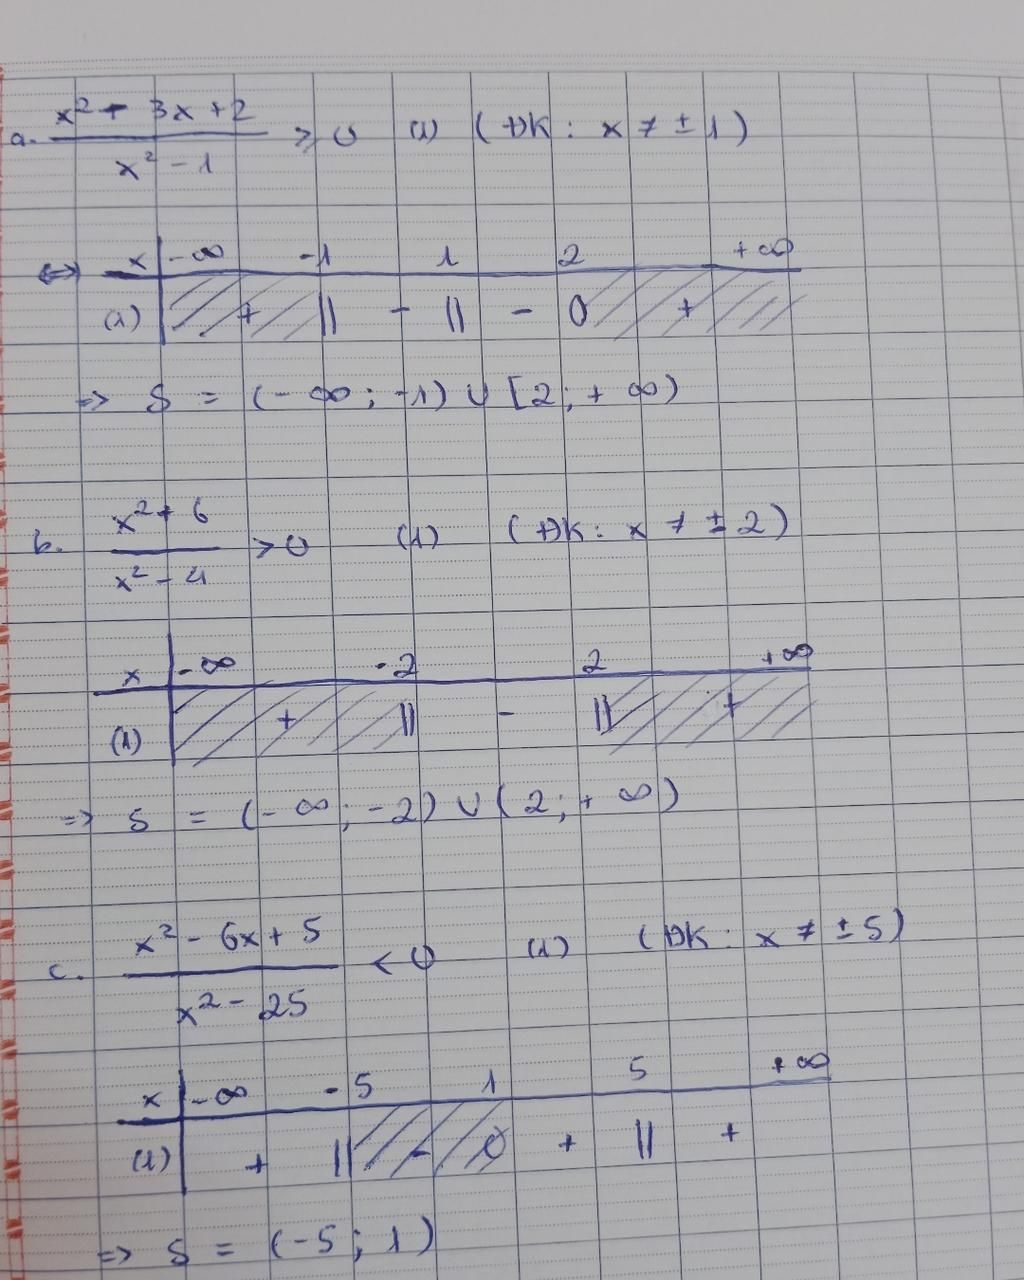 a. (x² - 3x + 2)/(x² - 1) ≥ 0 (1) (ĐK: x ≠ ± 1)
⇔ x | -∞ -1 1 2 +∞
(1) | + || - || - 0 +
=> S = (-∞; -1) ∪ [2; +∞)
b. (x² + 6)/(x² - 4) > 0 (1) (ĐK: x ≠ ± 2)
x | -∞ -2 2 +∞
(1) | + || - || +
=> S = (-∞; -2) ∪ (2; +∞)
c. (x² - 6x + 5)/(x² - 25) < 0 (1) (ĐK: x ≠ ± 5)
x | -∞ -5 1 5 +∞
(1) | + || - 0 + || +
=> S = (-5; 1)